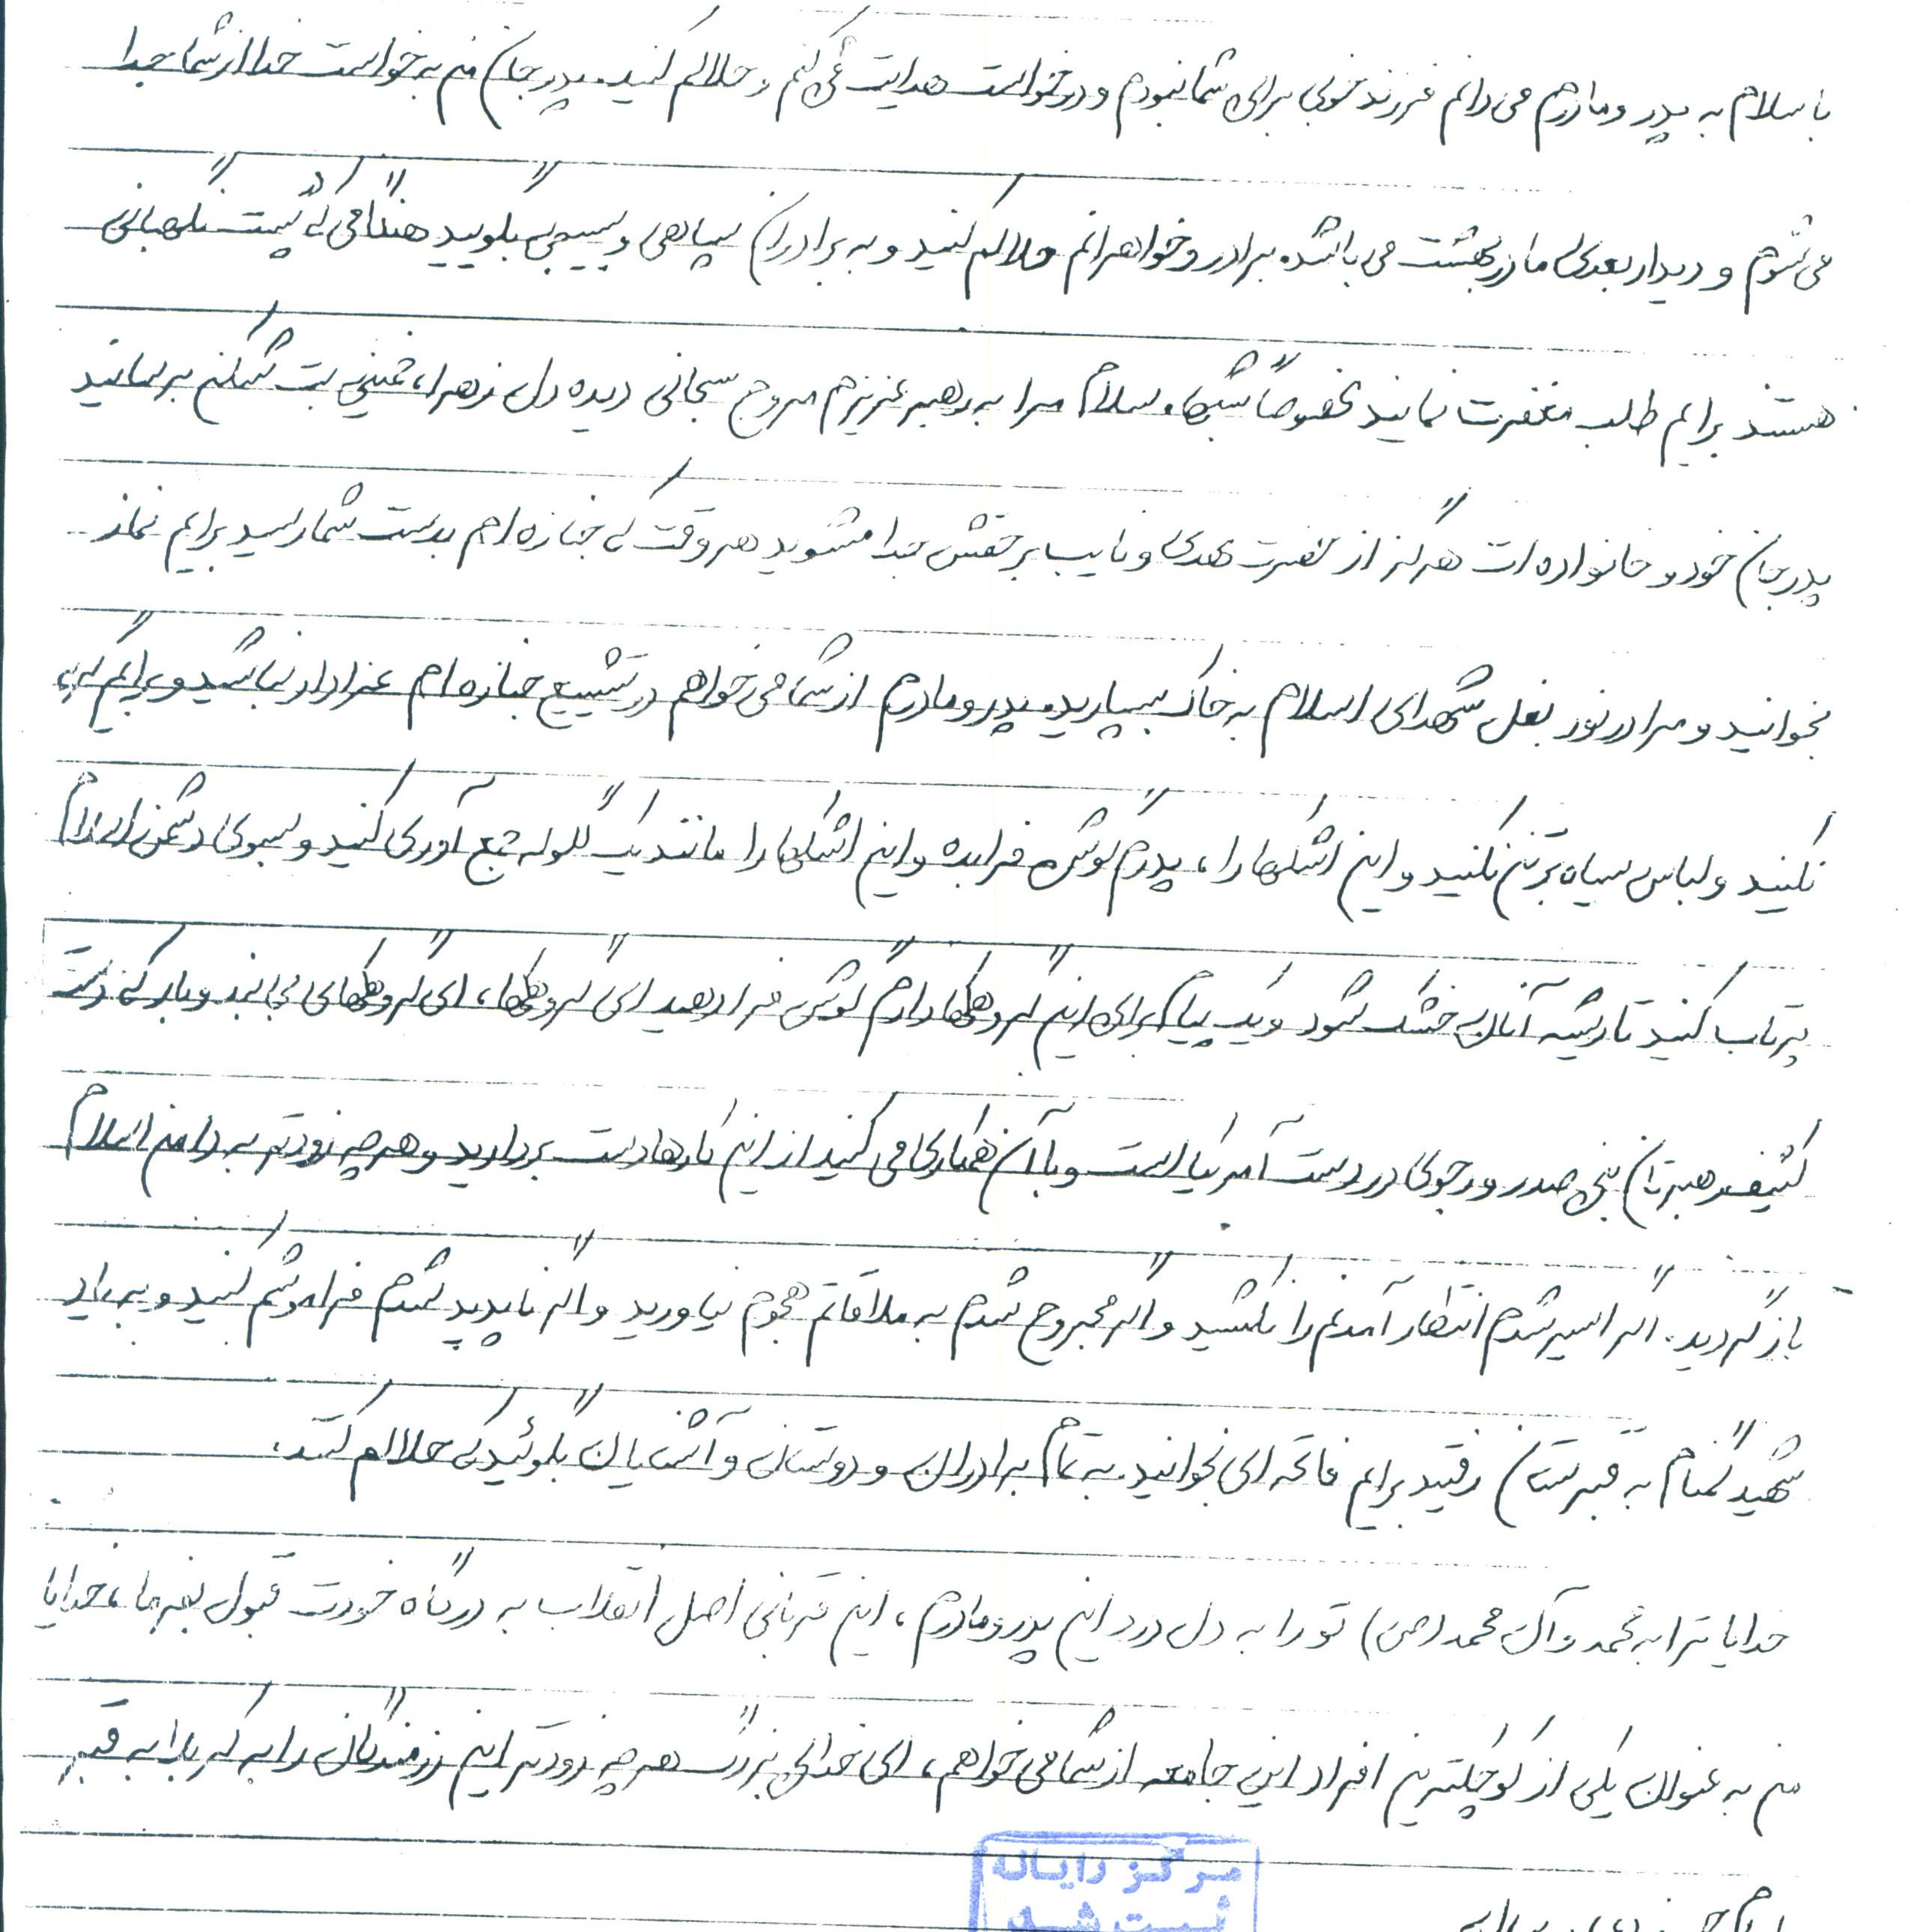 با سلام به پدر و مادرم می دانم فرزند خوبی برای شما نبودم و درخواست هدایت می کنم و حلالم کنید. پدر جان من به خواست خدا از شما جدا
می شوم و دیدار بعدی ما در بهشت می باشد. برادر و خواهرانم حلالم کنید و به برادران سپاهی و بسیجی بگویید هنگامی که پست نگهبانی
هستند برایم طلب مغفرت نمایند مخصوصاً شبها. سلام مرا به رهبر عزیزم سبحانی دیده دل زهرا، خمینی بت شکن برسانید
پدر جان خود و خانواده ات هرگز از حضرت مهدی و نایب برحقش جدا مشوید هر وقت که جنازه ام بدست شما رسید برایم نماز
بخوانید و مرا در نور بغل شهدای اسلام به خاک بسپارید. پدر و مادرم از شما می خواهم در تشییع جنازه ام عزادار نباشید و برایم گریه
نکنید و لباس سیاه بر تن نکنید و این اشکها را، پدرم گوش فرا بده و این اشکها را مانند یک گلوله جمع آوری کنید و بسوی دشمن اسلام
پرتاب کنید تا ریشه آنان خشک شود و یک پیام برای این گروهکها دارم گوش فرا دهید ای گروهکها، ای گروهکهای و بدبخت
کثیف رهبرتان بنی صدر و رجوی در دست آمریکا است و با آن همکاری می کنید از این کارها دست بردارید و هر چه زودتر به دامن اسلام
باز گردید. اگر اسیر شدم انتظار آمدنم را نکشید و اگر مجروح شدم به ملاقاتم هجوم نیاورید و اگر ناپدید شدم فراموشم کنید و به یاد
شهید گمنام به قبرستان رفتید برایم فاتحه ای بخوانید. به تمام برادران و دوستان و آشنایان بگوئید که حلالم کنند.
خدایا ترا به محمد و آل محمد (ص) تو را به دل درد این پدر و مادرم، این قربانی اصل انقلاب به درگاه خودت قبول بفرما، خدایا
من به عنوان یکی از کوچکترین افراد این جامعه از شما می خواهم، ای خدای بزرگ هر چه زودتر این رزمندگان را به کربلا به قبر
مرکز رایانه
ثبت شد